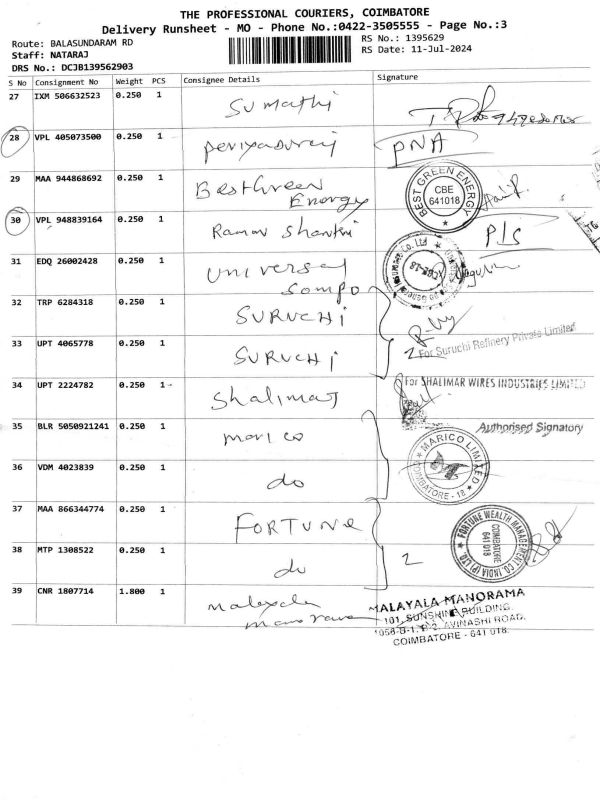 THE PROFESSIONAL COURIERS, COIMBATORE
Delivery Runsheet - MO - Phone No.:0422-3505555 - Page No.:3
Route: BALASUNDARAM RD
RS No.: 1395629
Staff: NATARAJ
RS Date: 11-Jul-2024
DRS No.: DCJB139562903
S No Consignment No Weight PCS Consignee Details Signature
27 IXM 506632523 0.250 1 Sumathi
28 VPL 405073500 0.250 1 periyadurai PNA
29 MAA 944868692 0.250 1 Best Green Energy
BEST GREEN ENERGY
CBE
641018
30 VPL 948839164 0.250 1 Raman Shanthi P/S
31 EDQ 26002428 0.250 1 universal Sompo
32 TRP 6284318 0.250 1 SURUCHI
33 UPT 4065778 0.250 1 SURUCHI 2
For Suruchi Refinery Private Limited
34 UPT 2224782 0.250 1 Shalimar
For SHALIMAR WIRES INDUSTRIES LIMITED
Authorised Signatory
35 BLR 5050921241 0.250 1 marico
MARICO LIMITED
COIMBATORE - 18
36 VDM 4023839 0.250 1 do
37 MAA 866344774 0.250 1 FORTUNE
FORTUNE WEALTH MANAGEMENT CO. INDIA (P) LTD.
COIMBATORE
641 018
38 MTP 1308522 0.250 1 do 2
39 CNR 1807714 1.800 1 malayala manorama
MALAYALA MANORAMA
101, SUNSHINE BUILDING,
1056-B-1, B-2, AVINASHI ROAD,
COIMBATORE - 641 018.